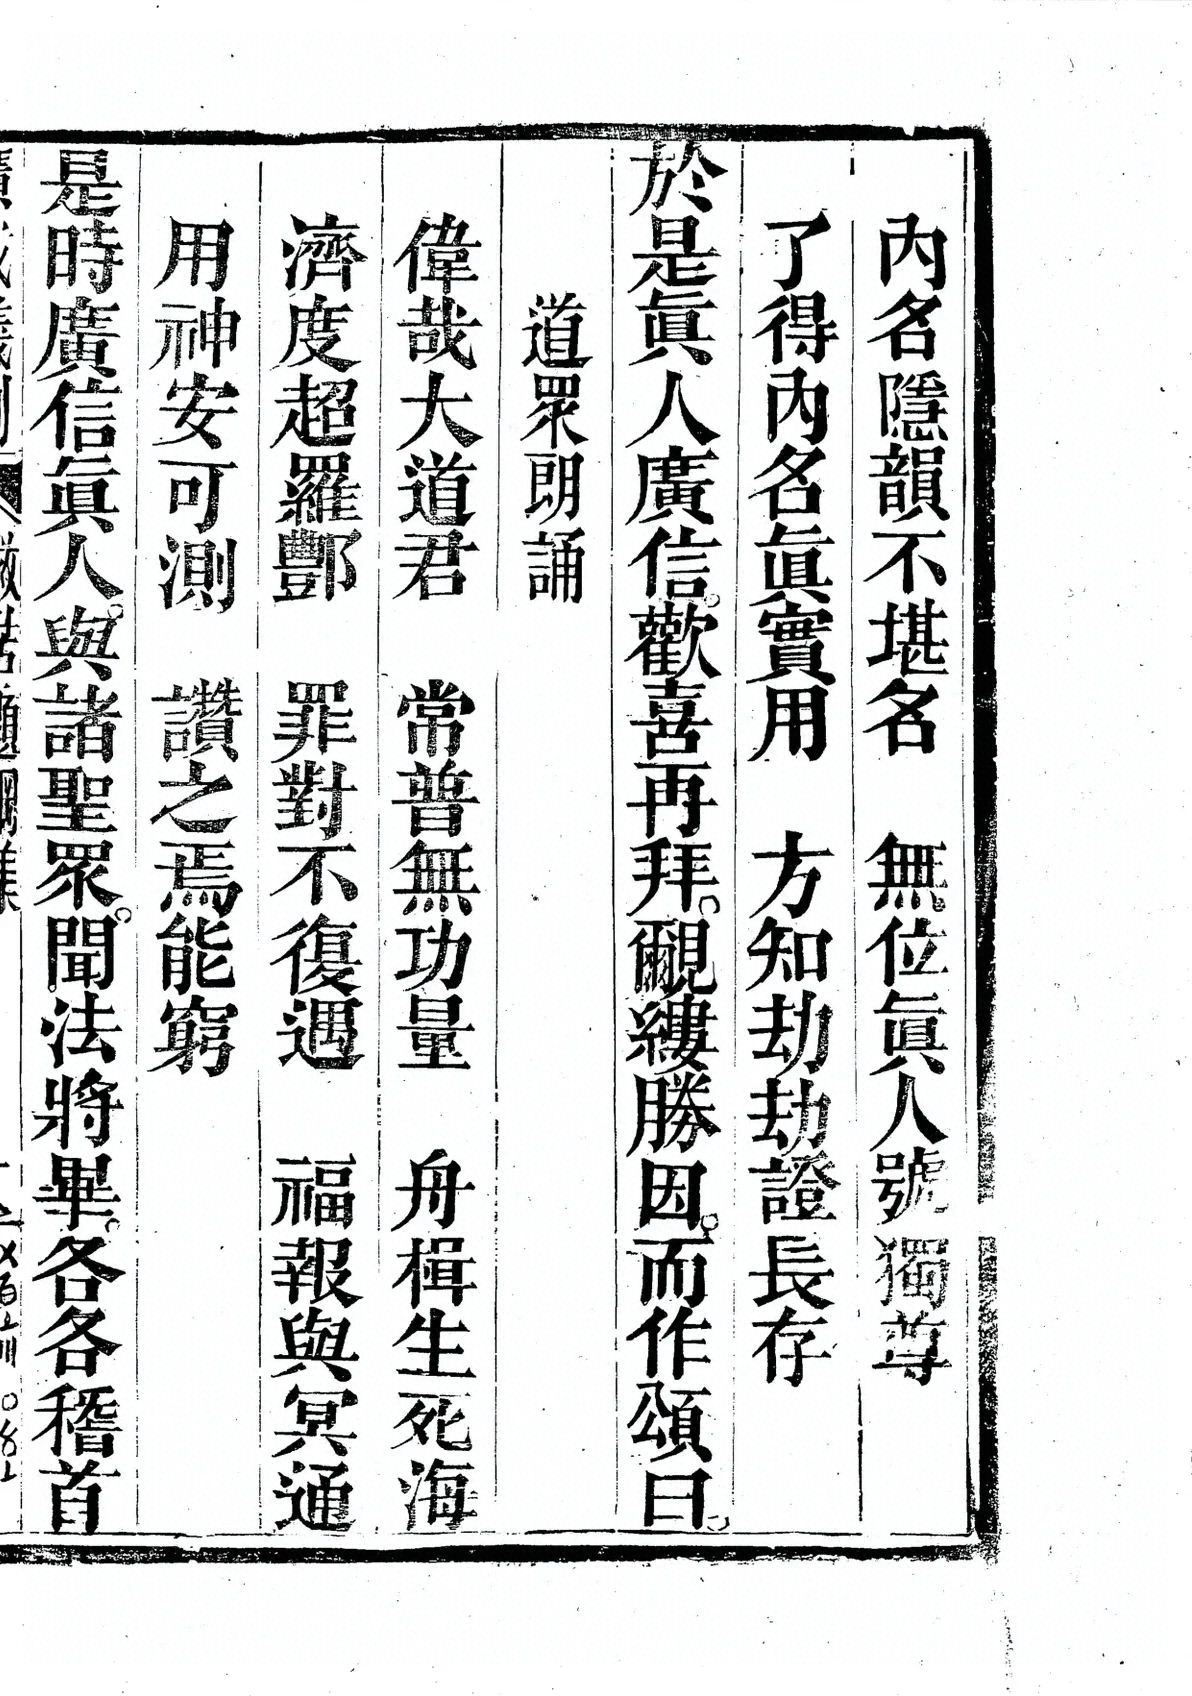 內名隱韻不堪名　無位眞人號獨尊
了得內名眞實用　方知劫劫證長存
於是眞人廣信。歡喜再拜。覼縷勝因。而作頌曰。
道眾朗誦
偉哉大道君　常普無功量　舟楫生死海
濟度超羅酆　罪對不復遇　福報與冥通
用神安可測　讚之焉能窮
是時廣信眞人。與諸聖眾。聞法將畢。各各稽首